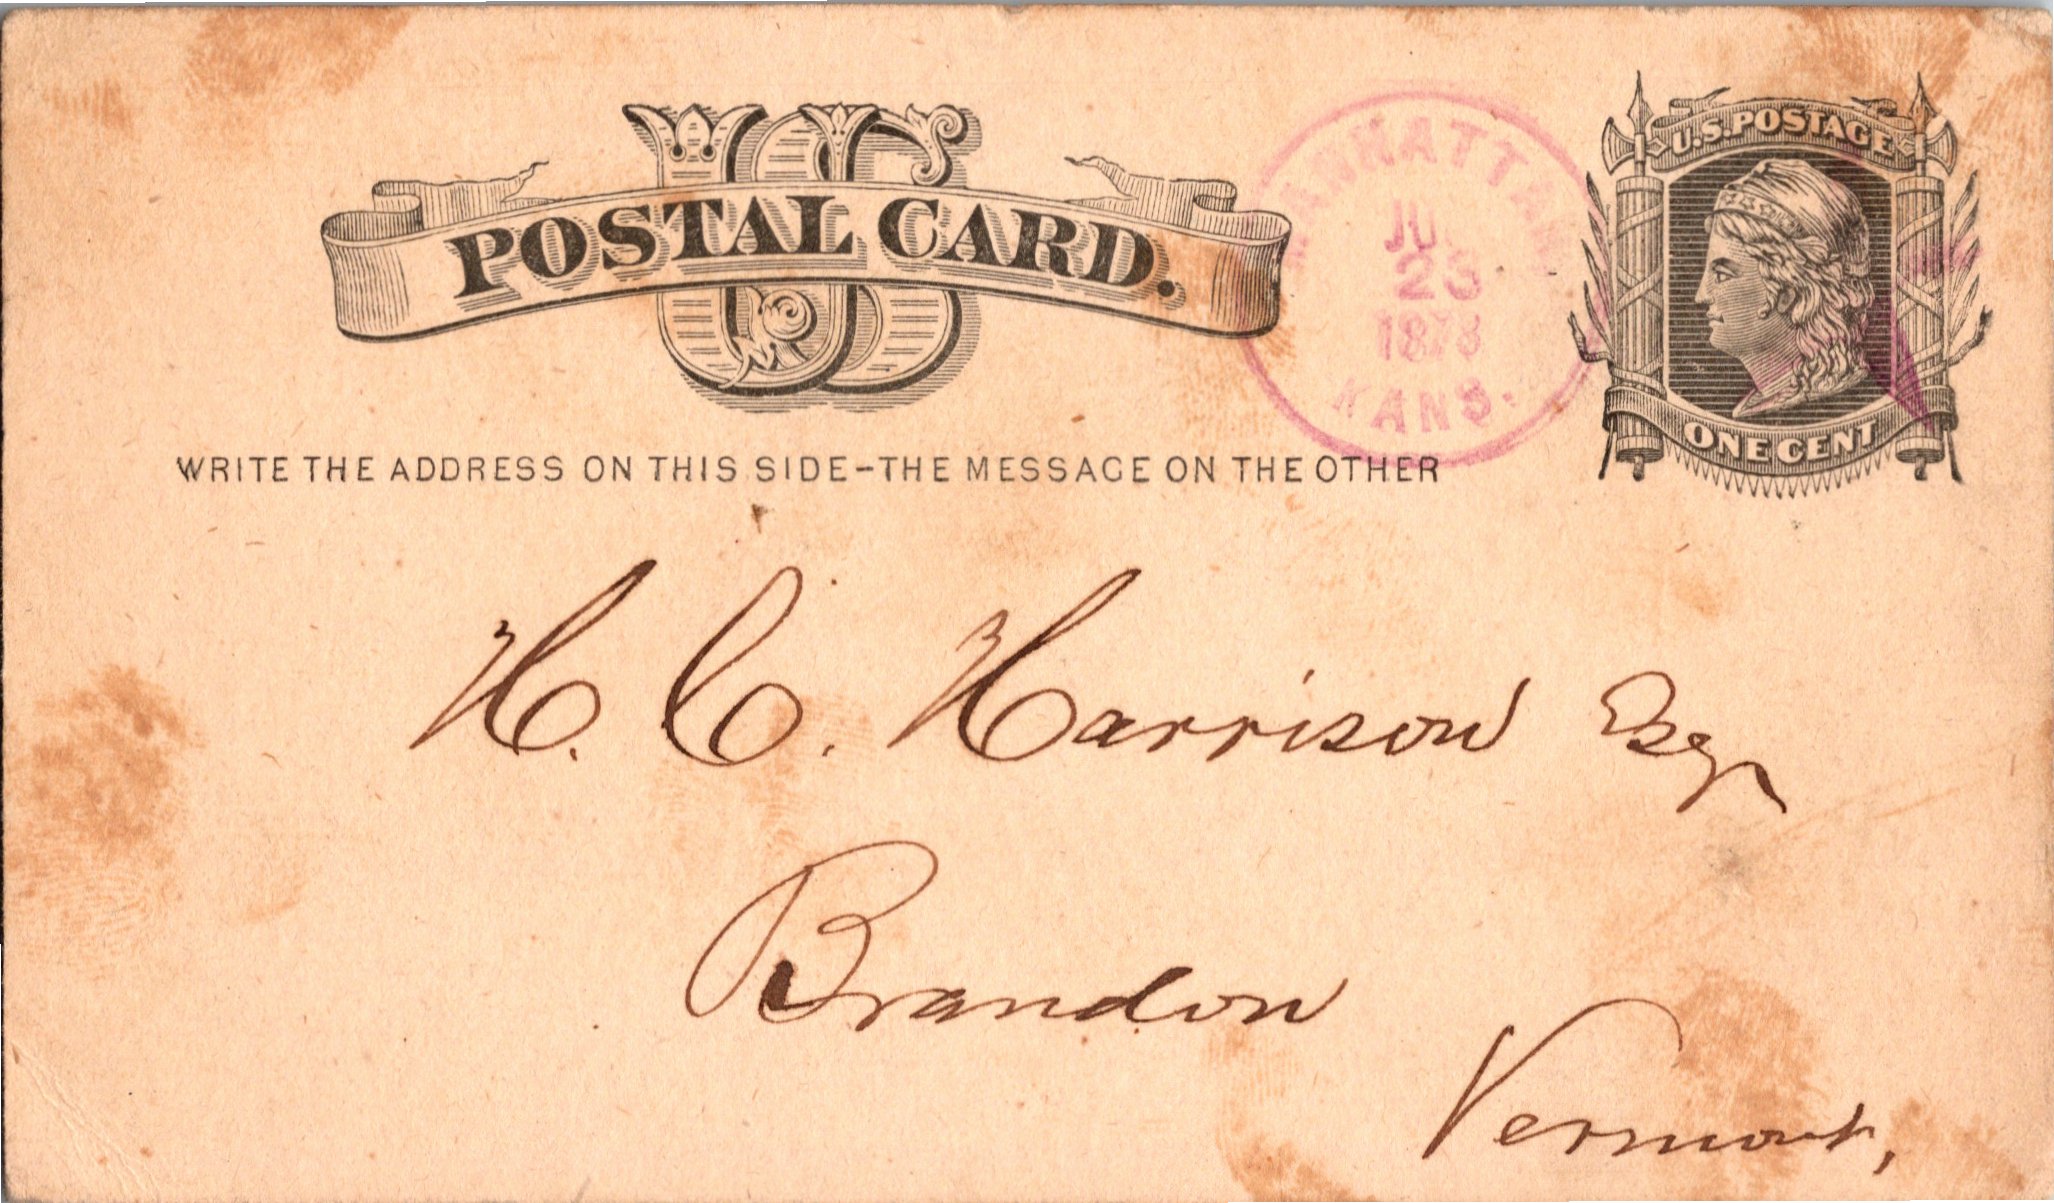 US
POSTAL CARD.
WRITE THE ADDRESS ON THIS SIDE–THE MESSAGE ON THE OTHER
MANHATTAN
23
1878
KANS.
U.S. POSTAGE
ONE CENT
H. C. Harrison Esqr
Brandon
Vermont,